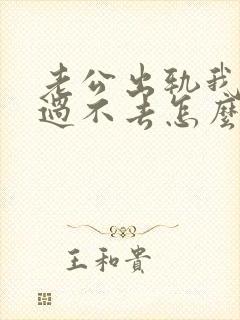 老公出轨我
过不去怎麼
王和貴